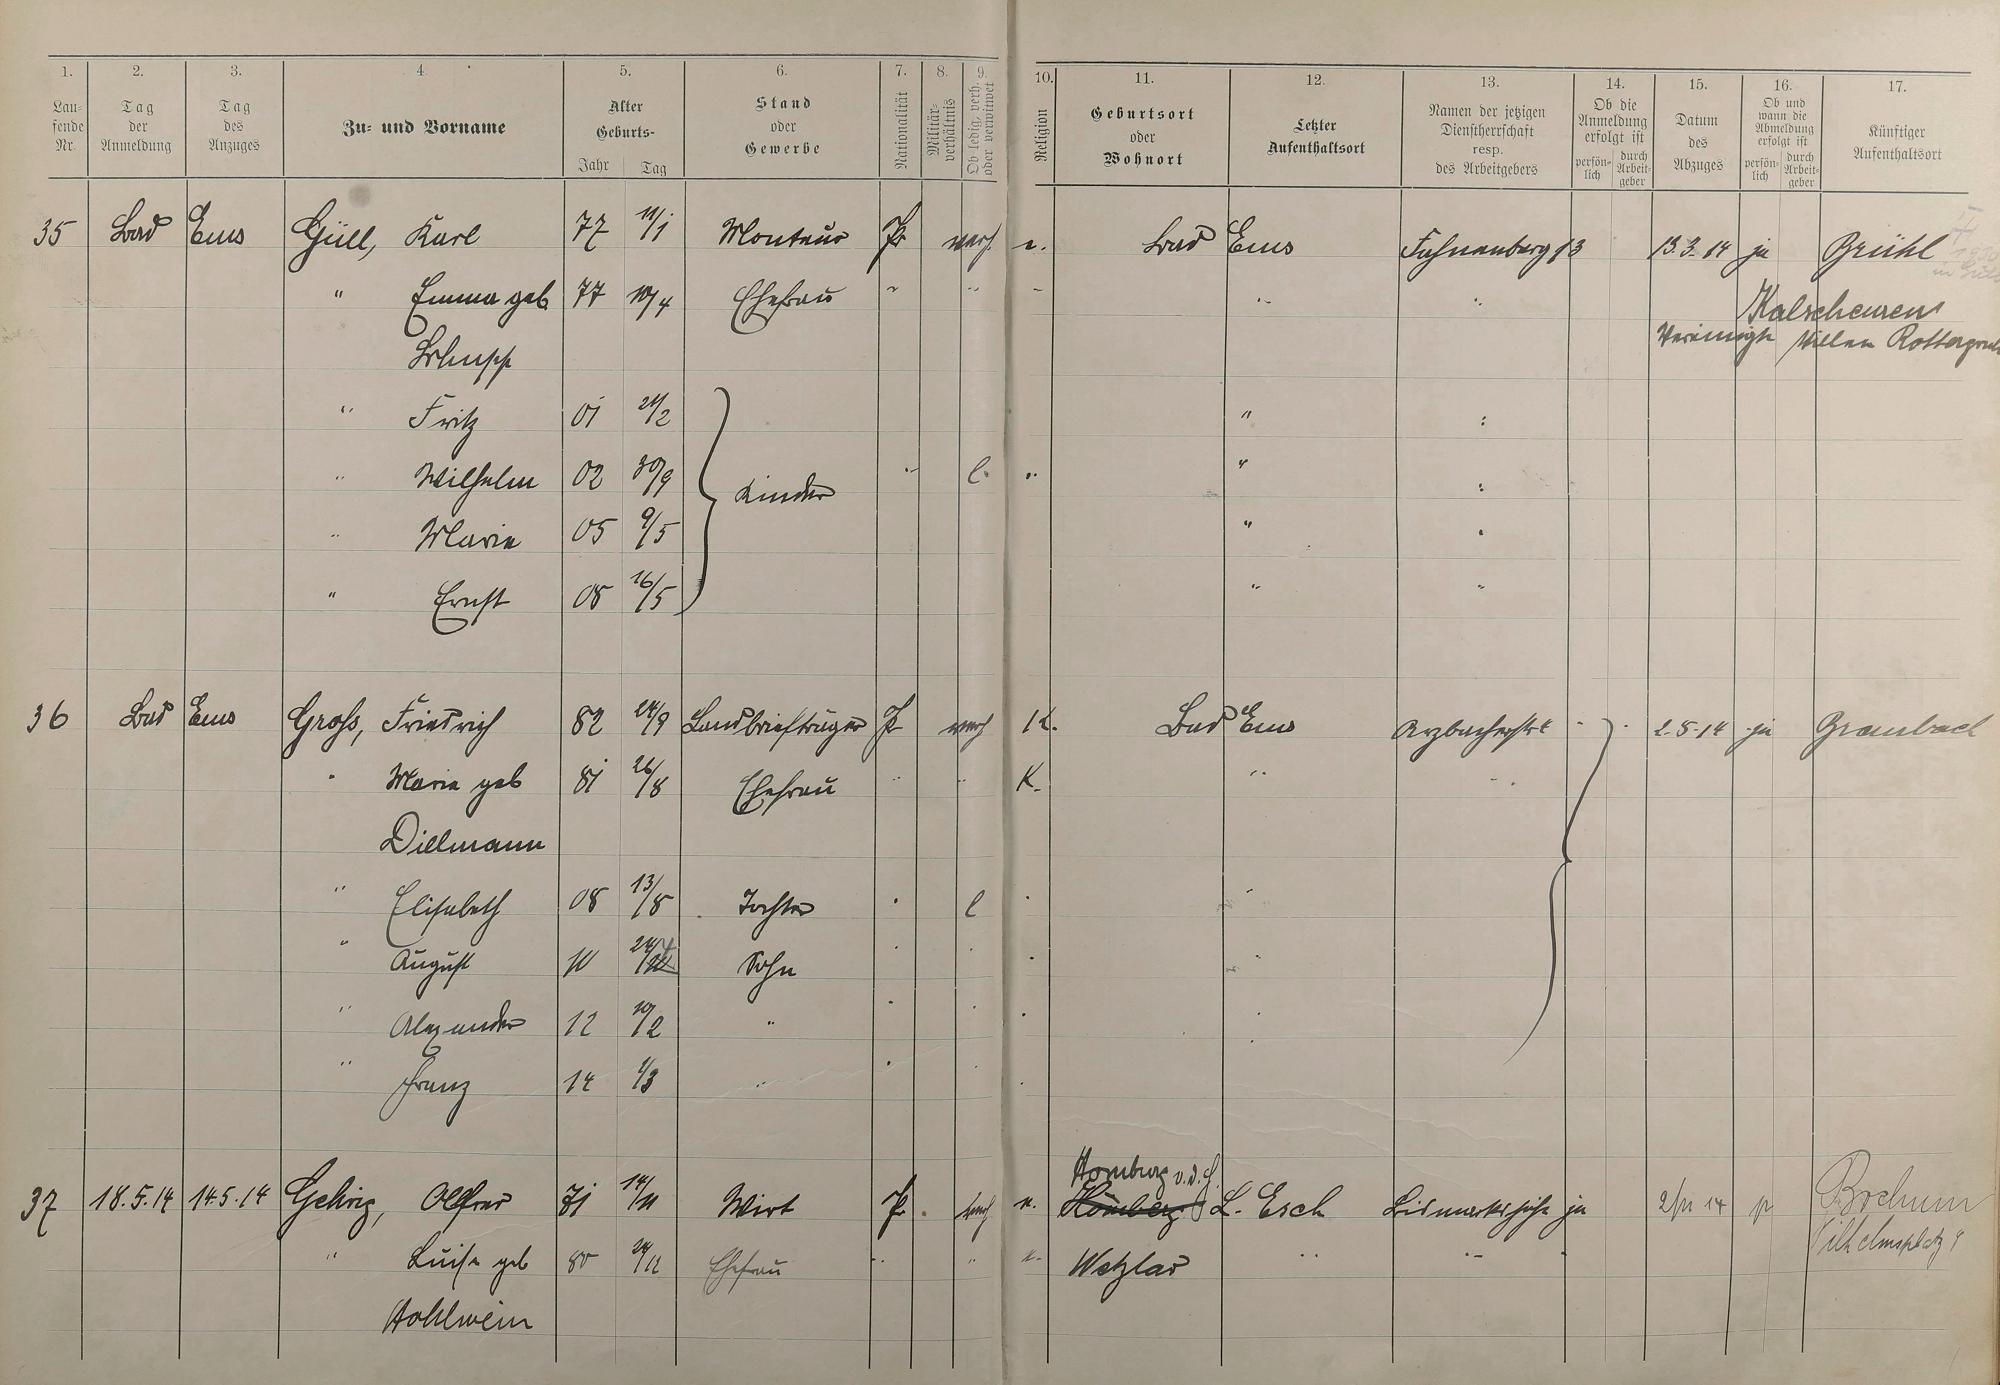 1. 2. 3. 4. 5. 6. 7. 8. 9. 10. 11. 12. 13. 14. 15. 16. 17.
Lau-
fende
Nr.
Tag
der
Anmeldung
Tag
des
Anzuges
Zu- und Vorname
Alter
Geburts-
Jahr Tag
Stand
oder
Gewerbe
Nationalität
Militär-
verhältnis
Ob ledig, verh.
oder verwitwet
Religion
Geburtsort
oder
Wohnort
Letzter
Aufenthaltsort
Namen der jetzigen
Dienstherrschaft
resp.
des Arbeitgebers
Ob die
Anmeldung
erfolgt ist
persön-
lich
durch
Arbeit-
geber
Datum
des
Abzuges
Ob und
wann die
Abmeldung
erfolgt ist
persön-
lich
durch
Arbeit-
geber
Künftiger
Aufenthaltsort
35 Bad Ems Güll, Karl 77 11/1 Monteur Pr verh. e. Bad Ems Fahnenberg 13 13.3.14 ja Brühl
" Emma geb 77 10/4 Ehefrau " " " " "
Kalscheuren
Vereinigte Villen
" Fritz 01 21/2 " "
" Wilhelm 02 30/9 Kinder " l. " " "
" Marie 05 9/5 " "
" Ernst 08 16/5 " "
36 Bad Ems Groß, Friedrich 82 24/9 Landbriefträger Pr verh K. Bad Ems Arzbacherstr 2.5.14 ja Braubach
" Marie geb 81 26/8 Ehefrau " " K. " "
Dillmann
" Elisabeth 08 13/8 Tochter " l " "
" August 10 Sohn " " " "
" Alexander 12 10/2 " " " " "
" Franz 14 1/3 " " " "
Homburg v.d.H.
37 18.5.14 14.5.14 Gehrig, Alfred 71 14/11 Wirt Pr. verh Homberg L. Esch ja 14 Bochum
" Luise geb 80 24/12 Ehefrau " " Wetzlar " " "
Wilhelmsplatz 9
Hohlwein